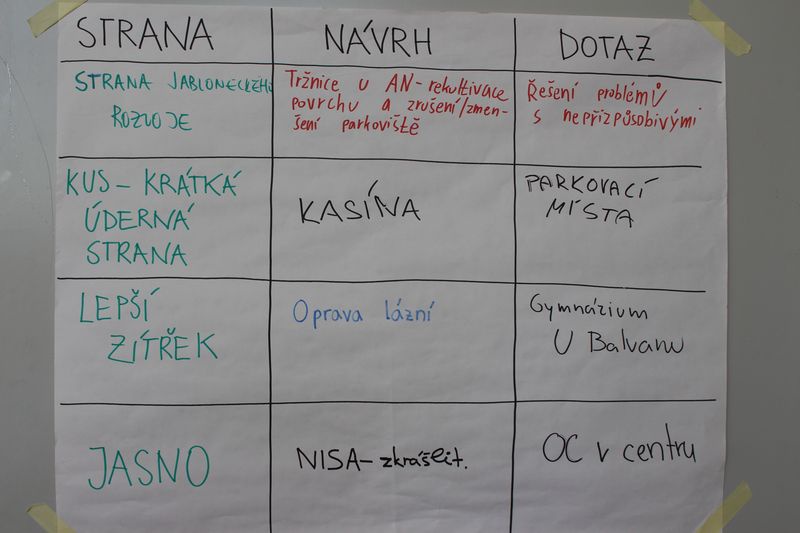 STRANA NÁVRH DOTAZ
STRANA JABLONECKÉHO
ROZVOJE
Tržnice u AN-rekultivace
povrchu a zrušení/zmen-
šení parkoviště
Řešení problémů
s nepřizpůsobivými
KUS – KRÁTKÁ
ÚDERNÁ
STRANA
KASÍNA
PARKOVACÍ
MÍSTA
LEPŠÍ
ZÍTŘEK
Oprava lázní
Gymnázium
U Balvanu
JASNO
NISA – zkrášlit.
OC v centru